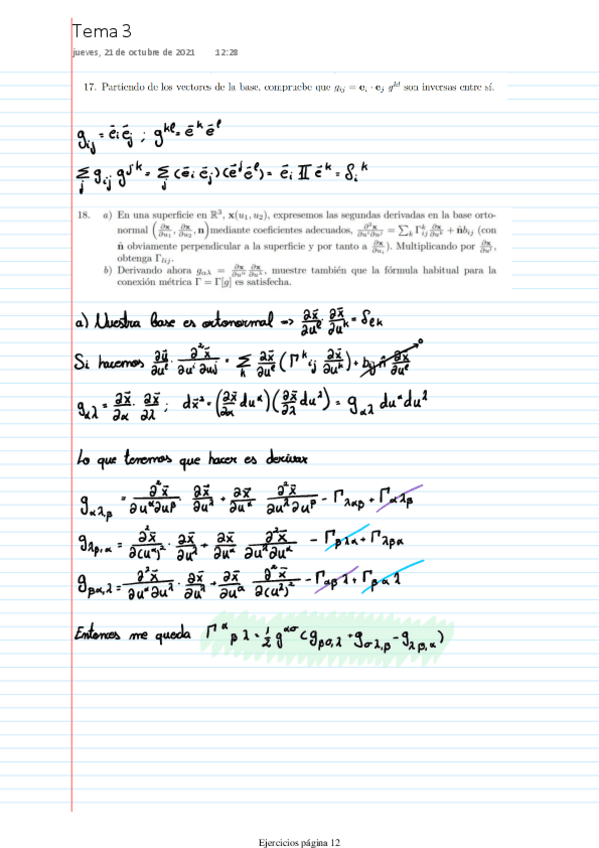 Tema 3
jueves, 21 de octubre de 2021 12:28
17. Partiendo de los vectores de la base, compruebe que g_{ij} = e_i · e_j g^{kl} son inversas entre sí.
g_{ij} = ē_i ē_j ; g^{kl} = ē^k ē^l
Σ_j g_{ij} g^{jk} = Σ_j (ē_i ē_j)(ē^j ē^k) = ē_i II ē^k = δ_i^k
18. a) En una superficie en ℝ³, x(u₁, u₂), expresemos las segundas derivadas en la base orto-
normal (∂x/∂u₁, ∂x/∂u₂, n) mediante coeficientes adecuados, ∂²x/∂u^i∂u^j = Σ_k Γ^k_{ij} ∂x/∂u^k + n̂b_{ij} (con
n̂ obviamente perpendicular a la superficie y por tanto a ∂x/∂u_i). Multiplicando por ∂x/∂u^l,
obtenga Γ_{lij}.
b) Derivando ahora g_{αλ} = ∂x/∂u^α ∂x/∂u^λ, muestre también que la fórmula habitual para la
conexión métrica Γ = Γ[g] es satisfecha.
a) Nuestra base es ortonormal → ∂x̄/∂u^l · ∂x̄/∂u^k = δ_{lk}
Si hacemos ∂ū/∂u^l · ∂²x̄/∂u^i ∂u^j = Σ_k ∂x̄/∂u^l (Γ^k_{ij} ∂x̄/∂u^k) + b_{ij} n̂ ∂x̄/∂u^l → 0
g_{αλ} = ∂x̄/∂α · ∂x̄/∂λ ; dx̄² = (∂x̄/∂α du^α)(∂x̄/∂λ du^λ) = g_{αλ} du^α du^λ
Lo que tenemos que hacer es derivar
g_{αλ,β} = ∂²x̄/∂u^α∂u^β · ∂x̄/∂u^λ + ∂x̄/∂u^α ∂²x̄/∂u^λ∂u^β - Γ_{λαβ} + Γ_{αλβ}
g_{λβ,α} = ∂²x̄/∂(u^α)² · ∂x̄/∂u^λ + ∂x̄/∂u^α ∂²x̄/∂u^λ∂u^α - Γ_{βλα} + Γ_{λβα}
g_{βα,λ} = ∂²x̄/∂u^α∂u^λ · ∂x̄/∂u^λ + ∂x̄/∂u^α ∂²x̄/∂(u^λ)² - Γ_{αβλ} + Γ_{βαλ}
Entonces me queda Γ^α_{βλ} = 1/2 g^{ασ} (g_{βσ,λ} + g_{σλ,β} - g_{λβ,α})
Ejercicios página 12